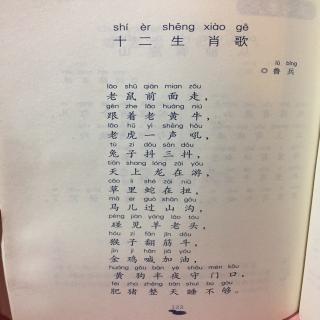 shí èr shēng xiào gē
十二生肖歌
lǔ bīng
◎鲁兵
lǎo shǔ qián mian zǒu
老鼠前面走，
gēn zhe lǎo huáng niú
跟着老黄牛，
lǎo hǔ yì shēng hǒu
老虎一声吼，
tù zi dǒu sān dǒu
兔子抖三抖，
tiān shang lóng zài yóu
天上龙在游，
cǎo li shé zài niǔ
草里蛇在扭，
mǎ er guò shān gōu
马儿过山沟，
pèng jiàn yáng lǎo tóu
碰见羊老头，
hóu zi fān jīn dǒu
猴子翻筋斗，
jīn jī hǎn jiā yóu
金鸡喊加油，
huáng gǒu bàn yè shǒu mén kǒu
黄狗半夜守门口，
féi zhū zhěng tiān shuì bú gòu
肥猪整天睡不够。